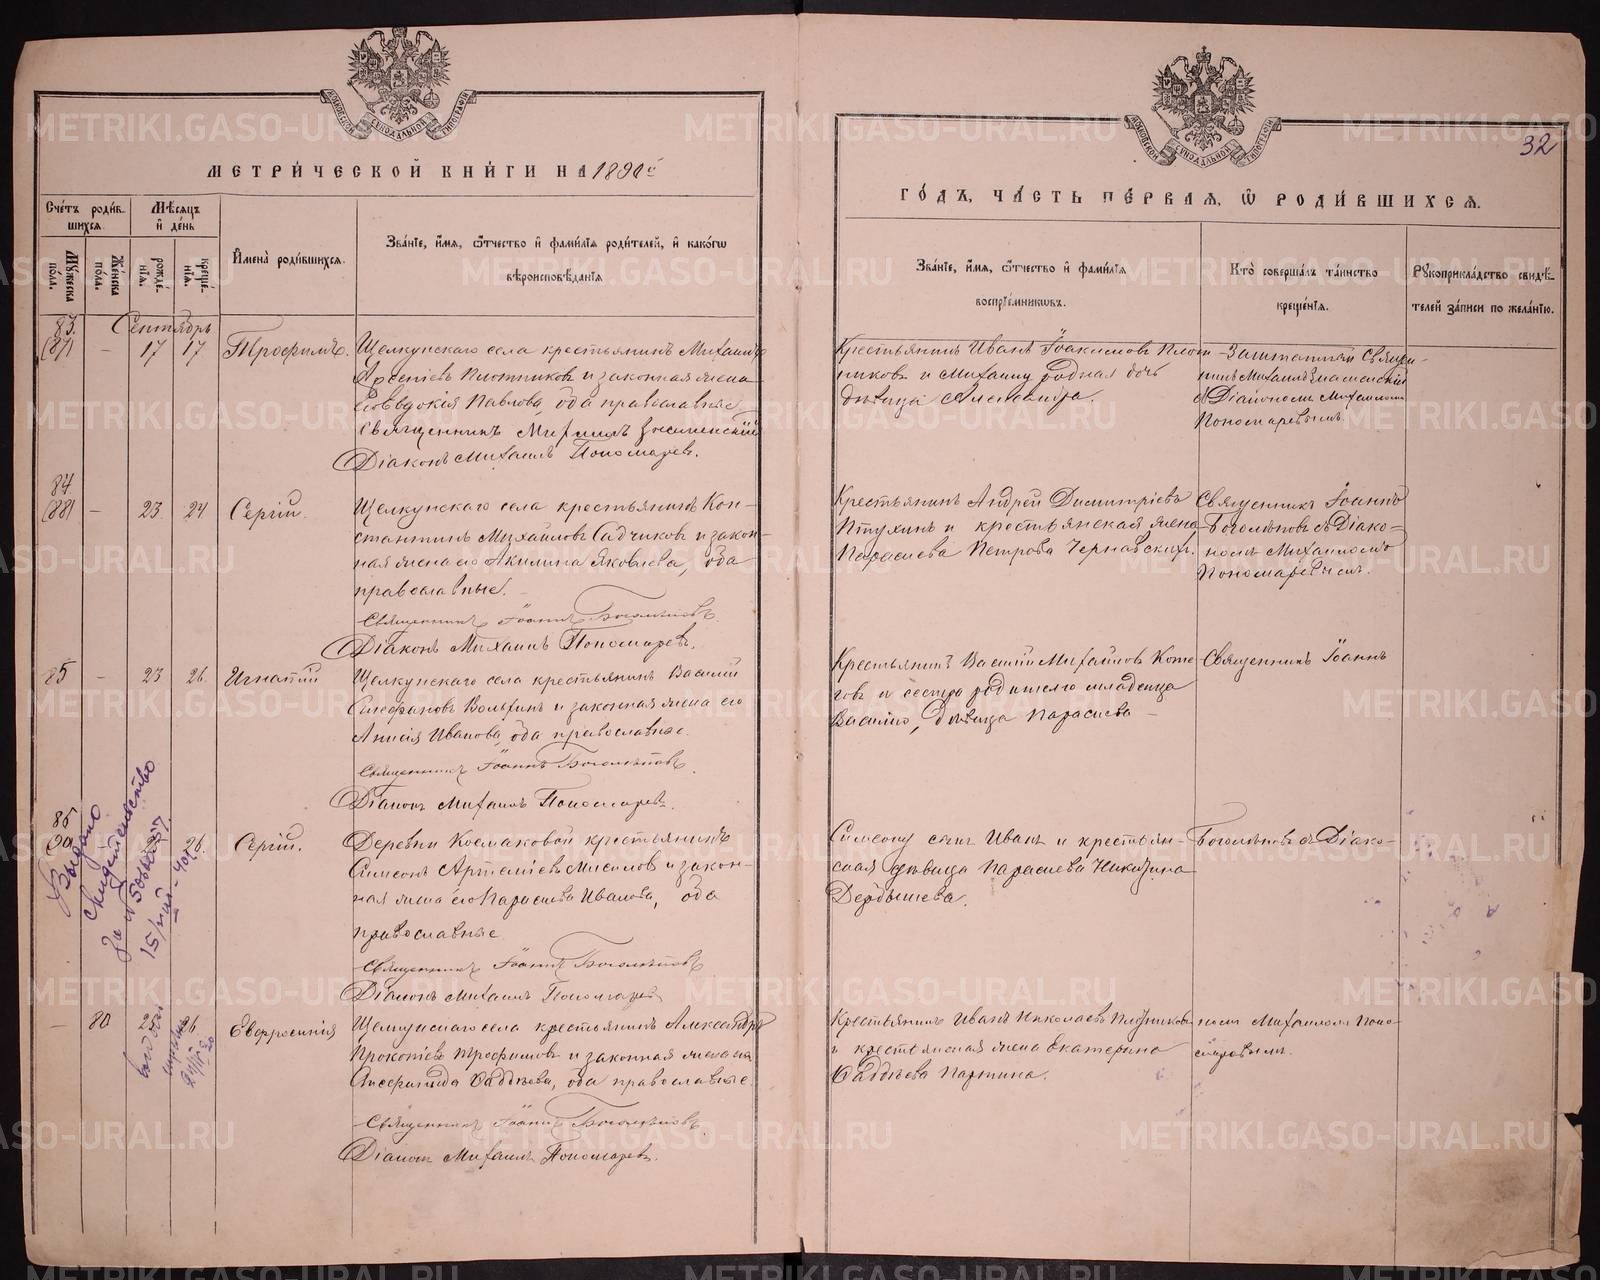 МОСКОВСКОЙ СИНОДАЛЬНОЙ ТИПОГРАФІИ
МОСКОВСКОЙ СИНОДАЛЬНОЙ ТИПОГРАФІИ
32
МЕТРИ́ЧЕСКОЙ КНИ́ГИ НА 1890й
ГО́ДЪ, ЧА́СТЬ ПЕ́РВАЯ, Ѡ РОДИ́ВШИХСЯ.
Сче́тъ роди́в-
шихся.
Мѣ́сяцъ
и де́нь
Му́жеска по́ла.
Же́нска по́ла.
рожде́нїя.
креще́нїя.
И҆мена̀ роди́вшихся.
Зва́нїе, и҆́мя, ѻ҆́тчество и҆ фами́лїя роди́телей, и҆ како́гѡ
вѣроисповѣ́данїя
Зва́нїе, и҆́мя, ѻ҆́тчество и҆ фами́лїя
воспрїе́мникѡвъ.
Кто̀ соверша́лъ та́инство
креще́нїя.
Рꙋкоприкла́дство свидѣ́-
телей за́писи по жела́нїю.
83. Сентябрь
(87) - 17 17 Трофимъ.
Щелкунскаго села крестьянинъ Михаилъ
Арсеніевъ Плотниковъ и законная жена
его Евдокія Павлова, оба православные
Священникъ Михаилъ Знаменскій
Діаконъ Михаилъ Пономаревъ.
Крестьянинъ Иванъ Іоакимовъ Плот-
никовъ и Михаилу родная дочь
дѣвица Александра.
Заштатный Священ-
никъ Михаилъ Знаменскій
съ Діакономъ Михаиломъ
Пономаревымъ.
84
(88) - 23. 24 Сергій.
Щелкунскаго села крестьянинъ Кон-
стантинъ Михайловъ Садчиковъ и закон-
ная жена его Акилина Яковлева, оба
православные.
Священникъ Іоаннъ Боголѣповъ.
Діаконъ Михаилъ Пономаревъ.
Крестьянинъ Андрей Димитріевъ
Птухинъ и крестьянская жена
Параскева Петрова Чернавскихъ.
Священникъ Іоаннъ
Боголѣповъ съ Діако-
номъ Михаиломъ
Пономаревымъ.
85 - 23 26. Игнатій
Щелкунскаго села крестьянинъ Василій
Стефановъ Волхинъ и законная жена его
Анисія Иванова, оба православные.
Священникъ Іоаннъ Боголѣповъ.
Діаконъ Михаилъ Пономаревъ.
Крестьянинъ Василій Михайловъ Кото-
говъ и сестра родителю младенца
Василію, дѣвица Параскева
Священникъ Іоаннъ
86
26. Сергій.
Деревни Космаковой крестьянинъ
Симеонъ Артеміевъ Мисиловъ и закон-
ная жена его Параскева Иванова, оба
православные
Священникъ Іоаннъ Боголѣповъ
Діаконъ Михаилъ Пономаревъ
Симеону сынъ Иванъ и крестьян-
ская дѣвица Параскева Никитина
Дербышева.
Боголѣповъ съ Діако-
Выдано
Свидетельство
15/май-40г.
- 80 26 Евфросинія
Щелкунскаго села крестьянинъ Александръ
Прокопіевъ Трофимовъ и законная жена его
Ѳаддѣева, оба православные.
Священникъ Іоаннъ Боголѣповъ.
Діаконъ Михаилъ Пономаревъ.
Крестьянинъ Иванъ Николаевъ Плотниковъ
и крестьянская жена Екатерина
Ѳаддѣева Партина.
номъ Михаиломъ Поно-
маревымъ.